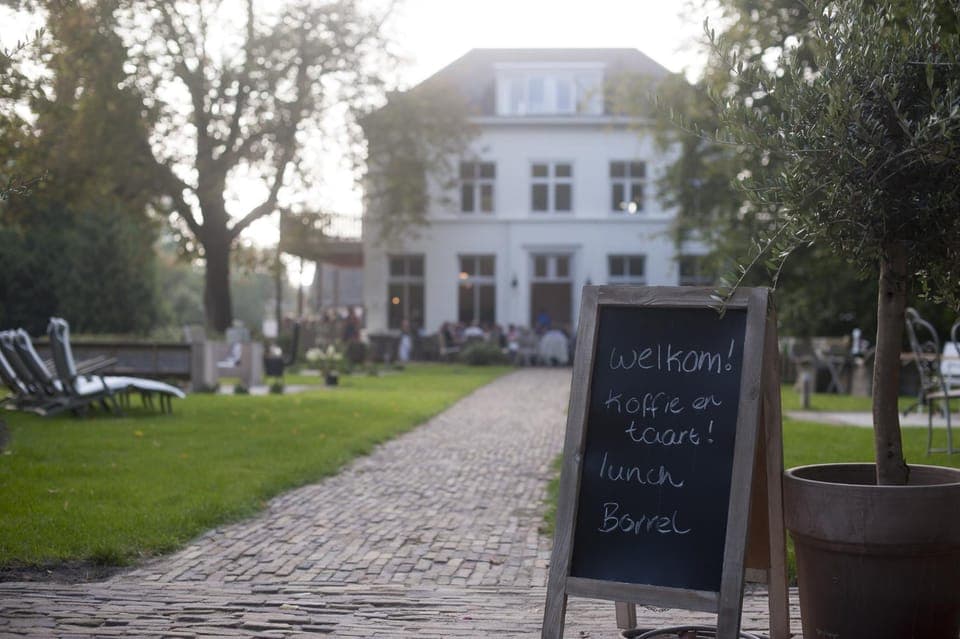 welkom!
Koffie en
taart!
lunch
Borrel